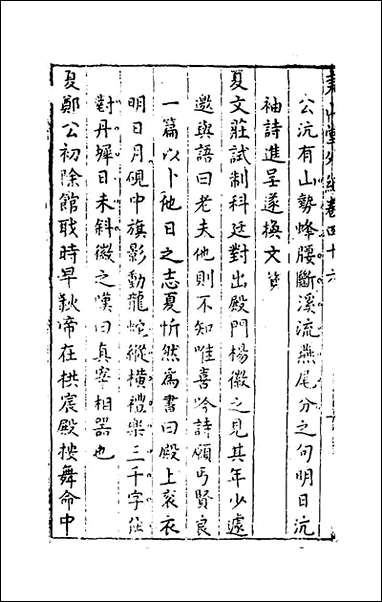 堯山堂外紀卷四十六
公沆有山勢蜂腰斷溪流燕尾分之句明日沆
袖詩進呈遂換文資
夏文莊試制科廷對出殿門楊徽之見其年少遽
邀與語曰老夫他則不知唯喜吟詩願丐賢良
一篇以卜他日之志夏忻然爲書曰殿上衮衣
明日月硯中旗影動龍蛇縱橫禮樂三千字獨
對丹墀日未斜徽之嘆曰真宰相器也
夏鄭公初除館職時早秋帝在拱宸殿按舞命中